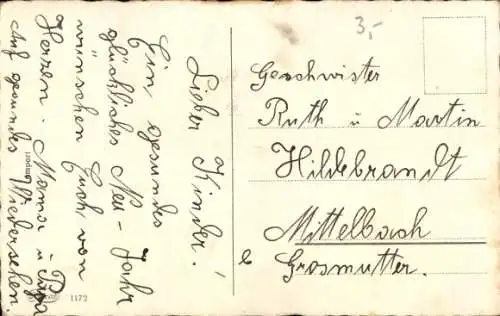 Lieber Kinder!
Ein gesundes
glückliches Neu-Jahr
wünschen Euch von
Herzen. Mama u Papa
Auf gesundes Wiedersehen
1172
3,-
Geschwister
Ruth u Martin
Hildebrandt
Mittelbach
b Grosmutter.